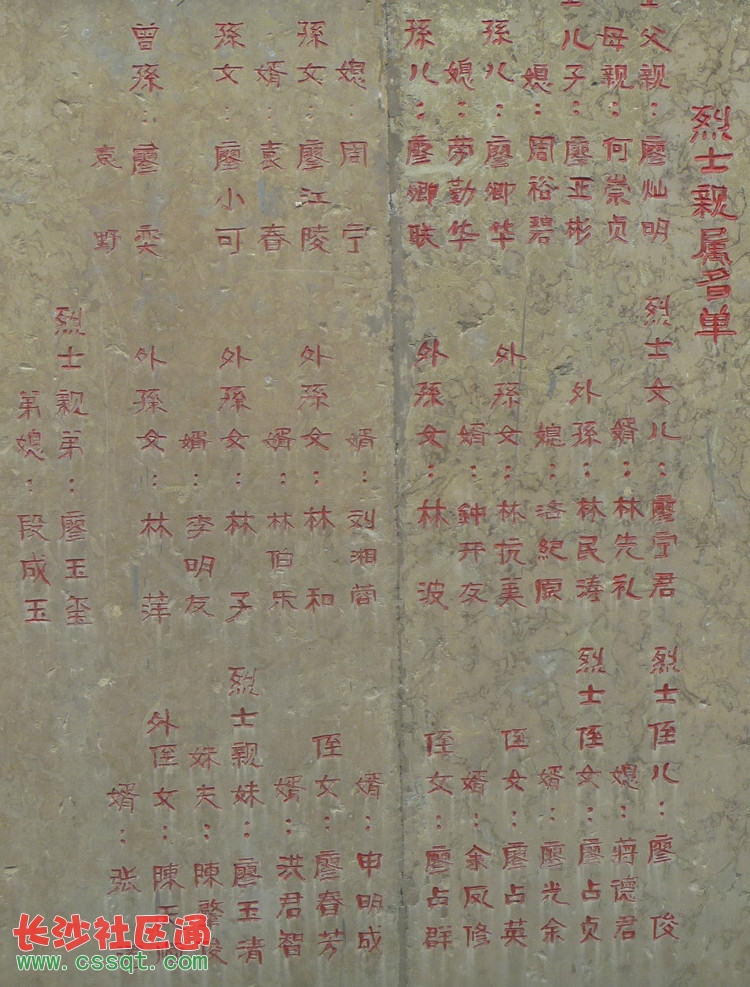 烈士親属名单
士父親：廖灿明
母親：何崇贞
士儿子：廖亚彬
媳：周裕碧
孫儿：廖卿华
媳：劳勤华
孫儿：廖卿联
媳：周宁
孫女：廖江陵
婿：袁春
孫女：廖小可
曾孫：廖奕
袁野
烈士女儿：廖宁君
婿：林先礼
外孫：林民涛
媳：洛紀原
外孫女：林抗美
婿：鈡开友
外孫女：林波
婿：刘湘蓉
外孫女：林和
婿：林伯乐
外孫女：林子
婿：李明友
外孫女：林萍
烈士親弟：廖玉玺
弟媳：段成玉
烈士侄儿：廖俊
媳：蒋德君
烈士侄女：廖占贞
婿：廖光余
侄女：廖占英
婿：余凤修
侄女：廖占群
婿：申明成
侄女：廖春芳
婿：洪君智
烈士親妹：廖玉清
妹夫：陳
外侄女：陳
婿：张
长沙社区通
www.cssqt.com